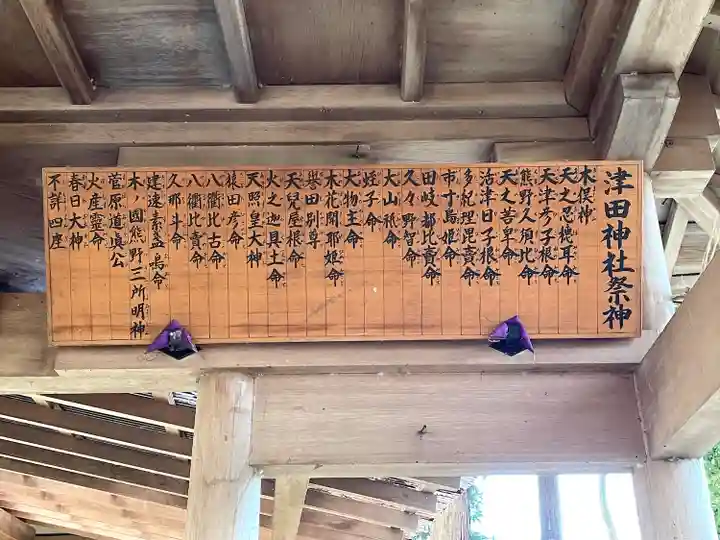 津田神社祭神
木俣神
天之忍穂耳命
天津彦子根命
熊野久須比命
天之菩卑命
活津日子根命
多紀理毘賣命
市寸島姫命
田岐都比賣命
久々野智命
大山祇命
妊子命
大物主命
木花開耶姫命
誉田別尊
天兒屋根命
火之迦具土命
天照皇大神
猿田彦命
八衢比古命
八衢比賣命
久那斗命
建速素盞嗚命
木ノ國熊野三所明神
菅原道真公
火産霊命
春日大神
不詳四座